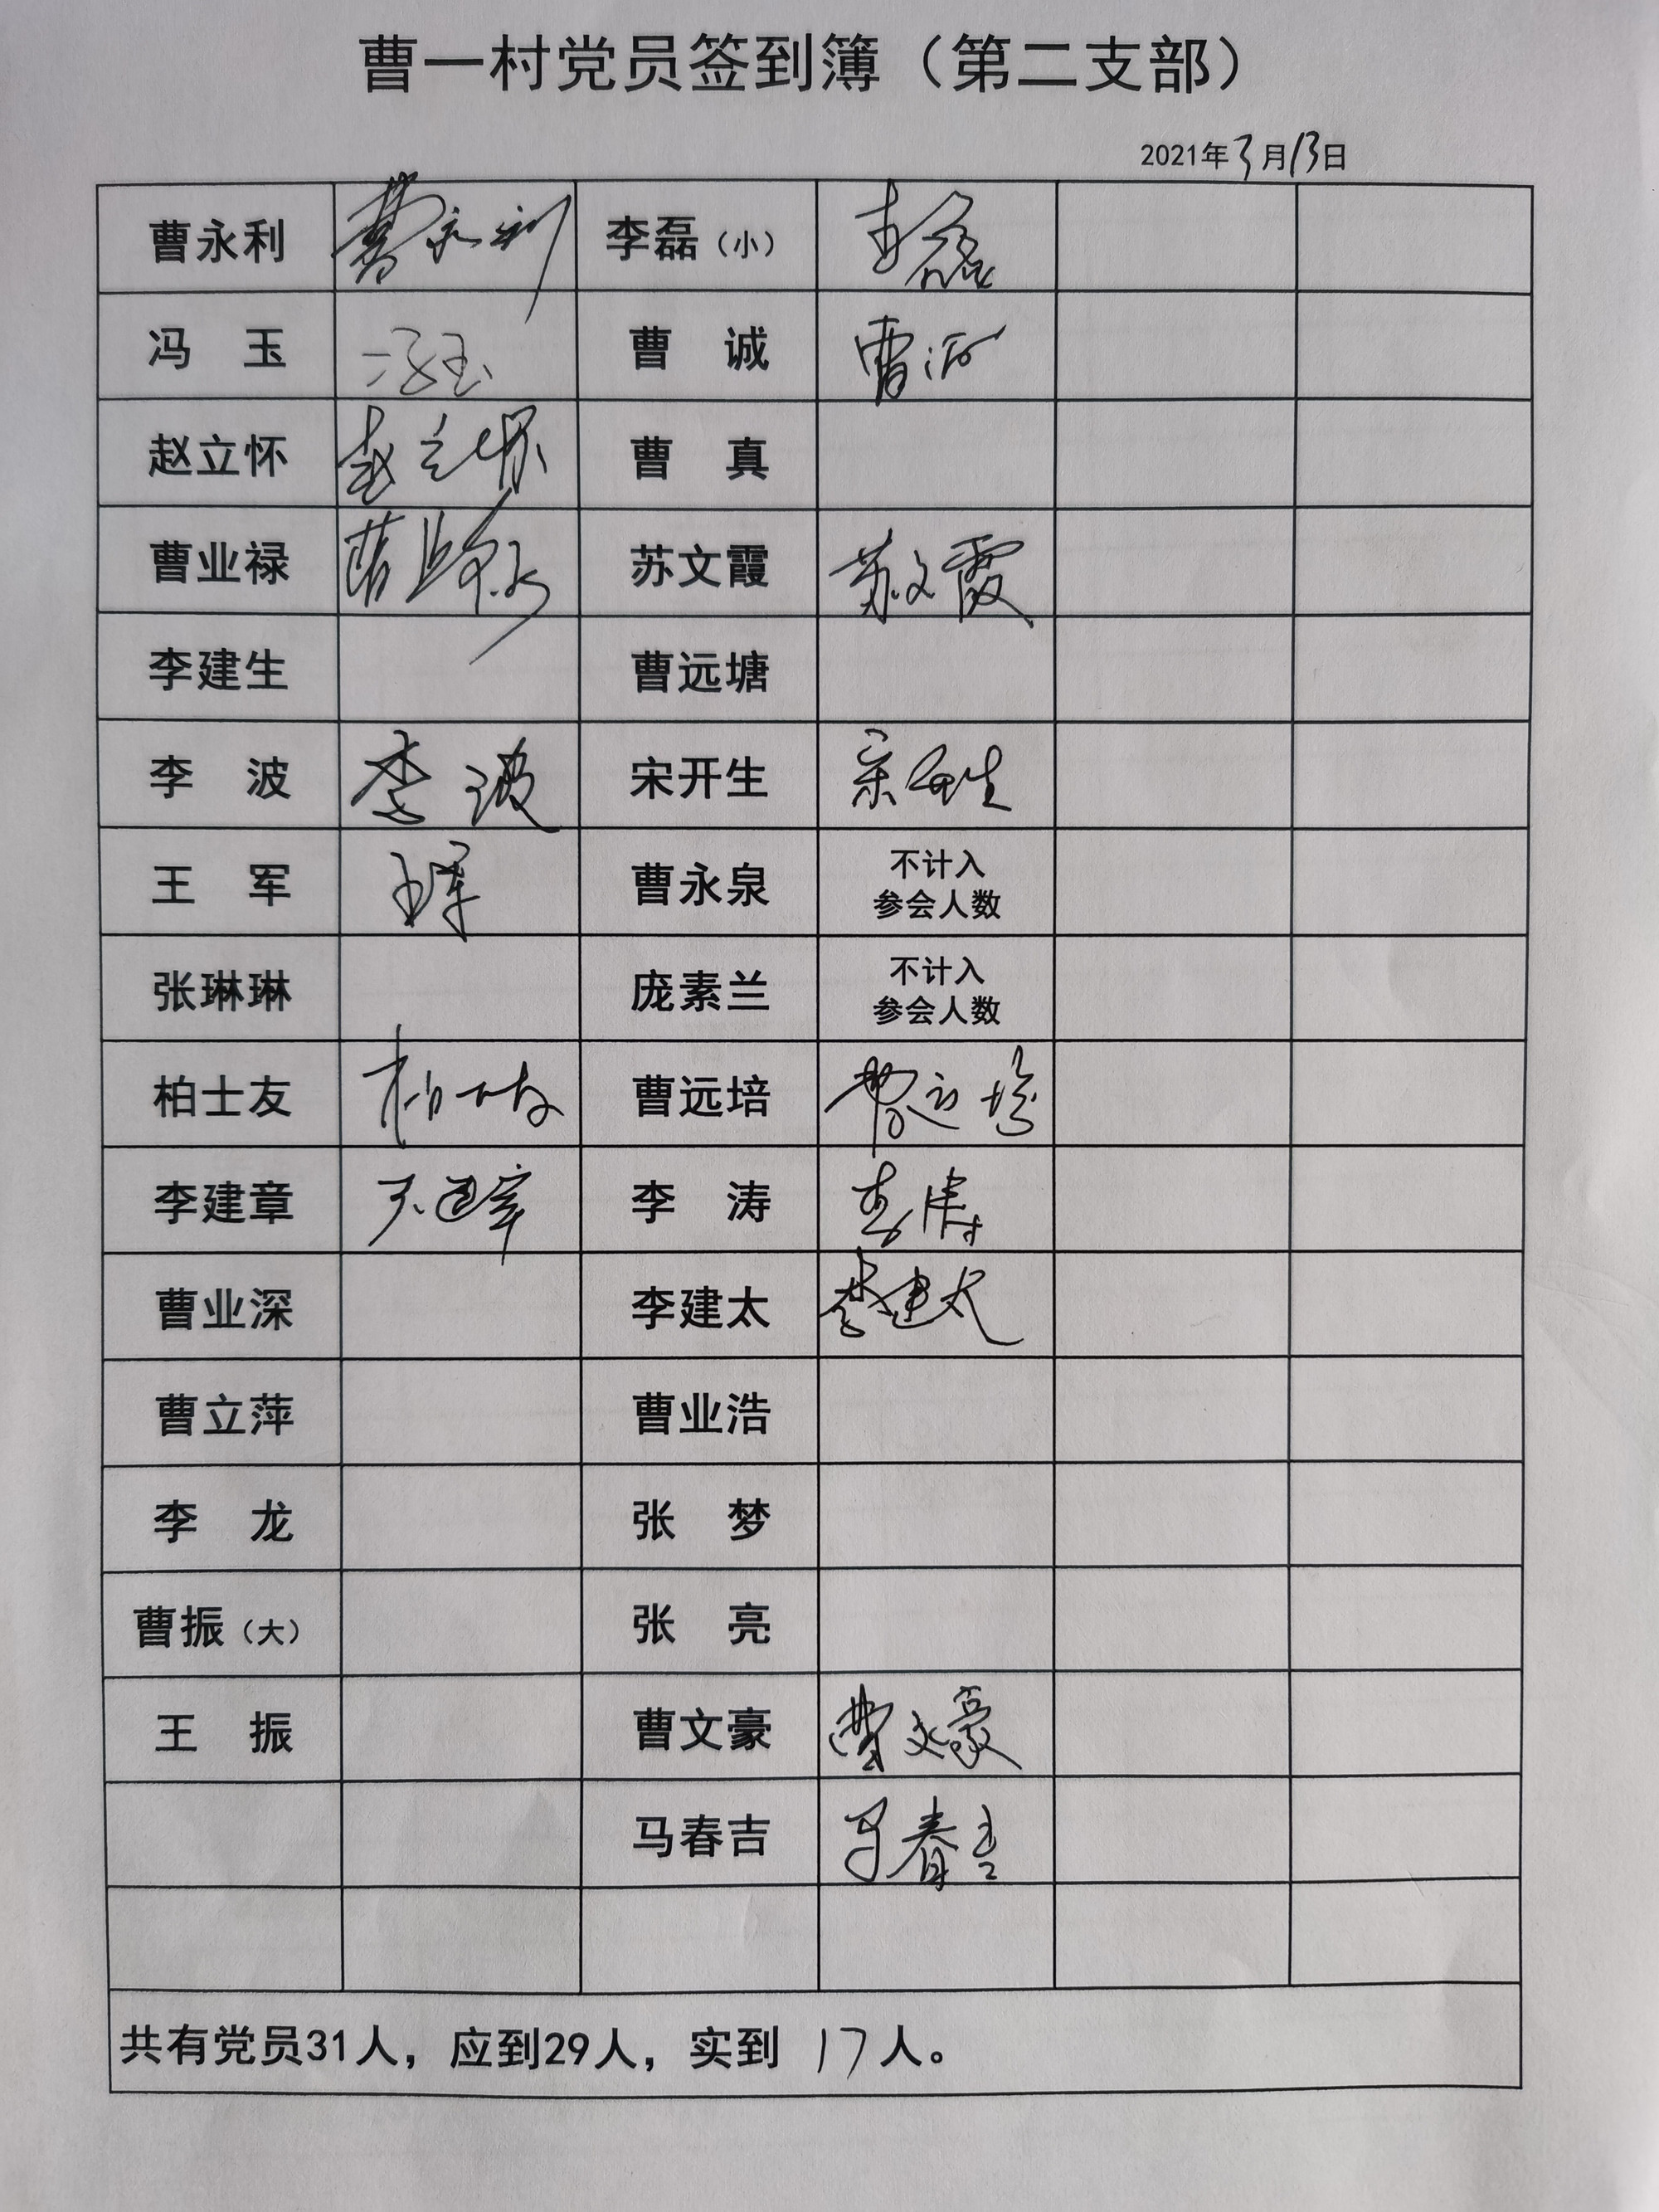 曹一村党员签到簿（第二支部）
2021年3月13日
曹永利 曹永利 李磊（小） 李磊
冯 玉 冯玉 曹 诚 曹诚
赵立怀 赵立怀 曹 真
曹业禄 曹业禄 苏文霞 苏文霞
李建生 曹远塘
李 波 李波 宋开生 宋开生
王 军 王军 曹永泉 不计入
参会人数
张琳琳 庞素兰 不计入
参会人数
柏士友 柏士友 曹远培 曹远培
李建章 李建章 李 涛 李涛
曹业深 李建太 李建太
曹立萍 曹业浩
李 龙 张 梦
曹振（大） 张 亮
王 振 曹文豪 曹文豪
马春吉 马春吉
共有党员31人，应到29人，实到 17人。